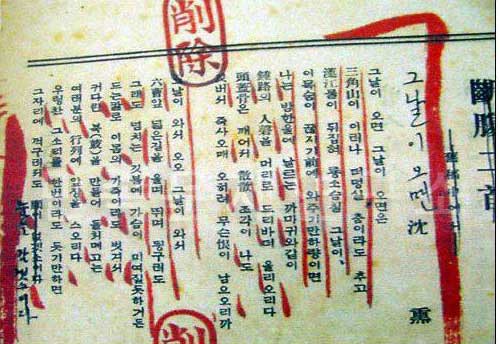 二首
그날이 오면 沈 熏
그날이 오면 그날이 오면은
三角山이 이러나 더덩실 춤이라도 추고
漢江물이 뒤집혀 룡소슴칠 그날이,
이목숨이 끊지기前에 와주기만하량이면
나는 밤한울에 날르는 까마귀와같이
鍾路의 人磬을 머리로 드리바더 울리오리다
頭蓋骨은 깨어저 散散 조각이 나도
깃버서 죽사오매 오히려 무슨恨이 남으오리까
그날이 와서 오오 그날이 와서
六曹앞 넓은길을 울며 뛰며 뒹구러도
그래도 넘치는 깃븜에 가슴이 미여질듯하거든
드는칼로 이몸의 가죽이라도 벗겨서
커다란 북(鼓)을 만들어 들처메고는
여러분의 行列에 앞장을 스오리다
우렁찬 그소리를 한번이라도 듯기만하면
그자리에 꺽구러저도 願이 없겠소이다
눈을 감겠소이다
削除
削